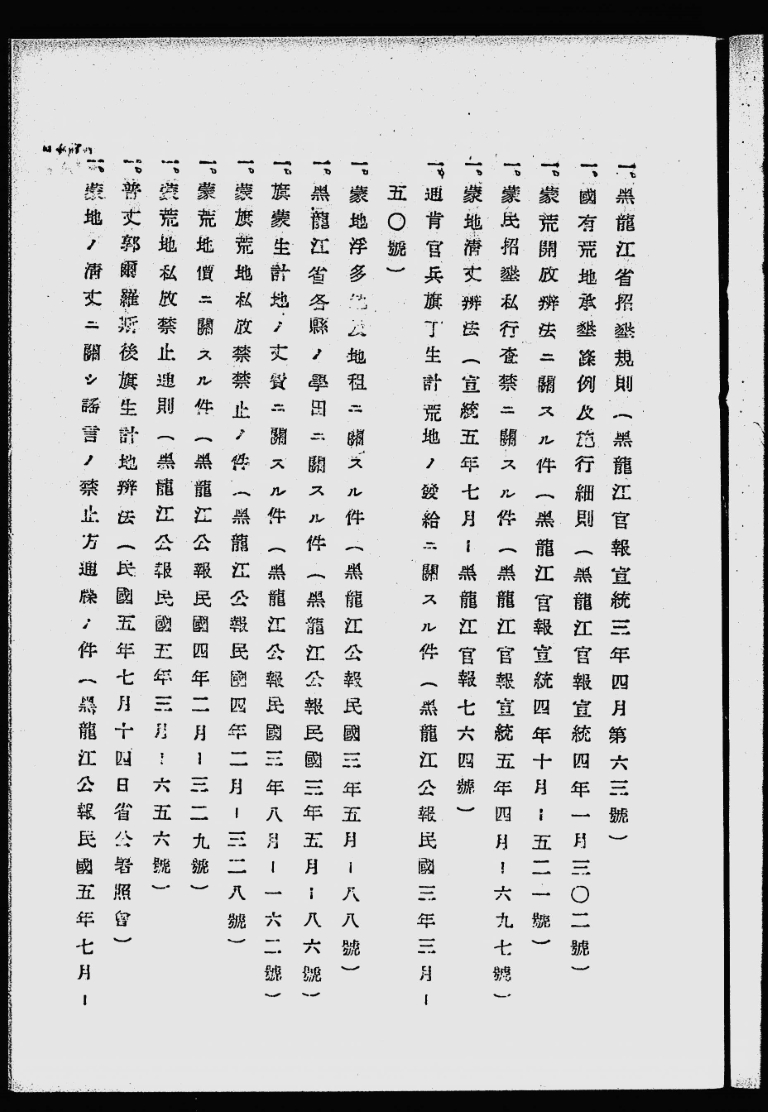 一。黑龍江省招墾規則（黑龍江官報宣統三年四月第六三號）
一。國有荒地承墾條例及施行細則（黑龍江官報宣統四年一月三〇二號）
一。蒙荒開放辦法ニ關スル件（黑龍江官報宣統四年十月ー五二一號）
一。蒙民招墾私行査禁ニ關スル件（黑龍江官報宣統五年四月ー六九七號）
一。蒙地淸丈辦法（宣統五年七月ー黑龍江官報七六四號）
一。通肯官兵旗丁生計荒地ノ發給ニ關スル件（黑龍江公報民國三年三月ー
五〇號）
一。蒙地浮多地及地租ニ關スル件（黑龍江公報民國三年五月ー八八號）
一。黑龍江省各縣ノ學田ニ關スル件（黑龍江公報民國三年五月ー八六號）
一。旗蒙生計地ノ丈費ニ關スル件（黑龍江公報民國三年八月ー一六二號）
一。蒙旗荒地私放禁禁止ノ件（黑龍江公報民國四年二月ー三二八號）
一。蒙荒地價ニ關スル件（黑龍江公報民國四年二月ー三二九號）
一。蒙荒地私放禁止通則（黑龍江公報民國五年三月ー六五六號）
一。普丈郭爾羅斯後旗生計地辦法（民國五年七月十四日省公署照會）
一。蒙地ノ淸丈ニ關シ謠言ノ禁止方通牒ノ件（黑龍江公報民國五年七月ー